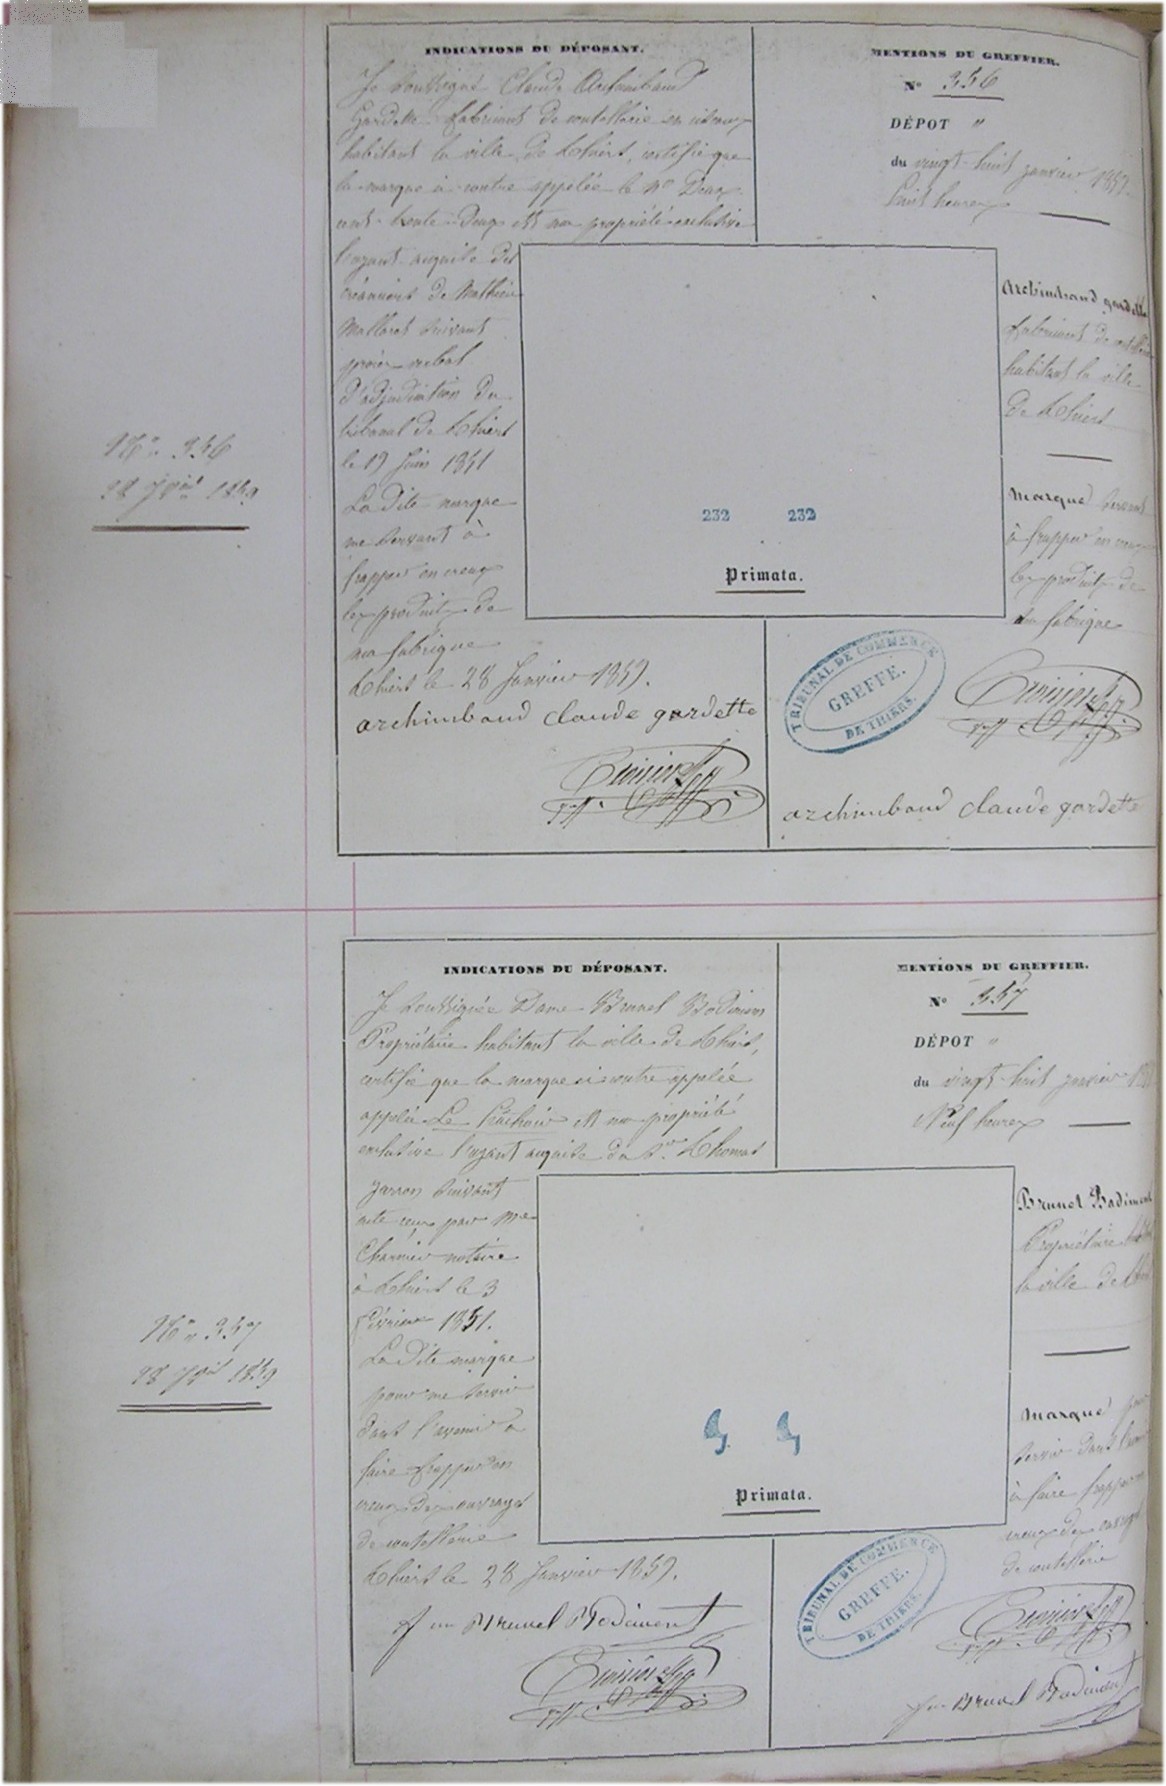 INDICATIONS DU DÉPOSANT.
Je soussigné Claude Archimbaud
Gardette fabricant de coutellerie en
habitant la ville de Thiers, certifie que
la marque ci contre appelée le No Deux
cent trente Deux est ma propriété exclusive
l'ayant acquise des
créanciers de Mathieu
suivant
procès verbal
d'adjudication du
tribunal de Thiers
le 19 Juin 1851
La dite marque
me servant à
frapper en creux
les produits de
ma fabrique
Thiers le 28 Janvier 1859.
archimbaud claude gardette
MENTIONS DU GREFFIER.
No 356
DÉPOT "
du vingt huit janvier 1859
huit heures
Archimbaud gardette
fabricant de coutellerie
habitant la ville
de Thiers
Marque servant
à frapper en creux
les produits de
sa fabrique
232 232
Primata.
TRIBUNAL DE COMMERCE
GREFFE.
DE THIERS.
archimbaud claude gardette
No 356
28 Jvier 1859
INDICATIONS DU DÉPOSANT.
Je soussignée Dame Brunel Bodiment
Propriétaire habitant la ville de Thiers,
certifie que la marque ci contre appelée
appelée Le est ma propriété
exclusive l'ayant acquise du Sr Thomas
Jarron suivant
acte reçu par Me
notaire
à Thiers le 3
février 1851.
La dite marque
pour me servir
dans l'avenir à
faire frapper en
creux des ouvrages
de coutellerie
Thiers le 28 Janvier 1859.
Brunel Bodiment
MENTIONS DU GREFFIER.
No 357
DÉPOT "
du vingt huit janvier
Neuf heures
Brunel Bodiment
Propriétaire
la ville de
Marque pour
servir dans l'avenir
à faire frapper en
creux des ouvrages
de coutellerie
Primata.
TRIBUNAL DE COMMERCE
GREFFE.
DE THIERS.
Brunel Bodiment
No 357
28 Jvier 1859